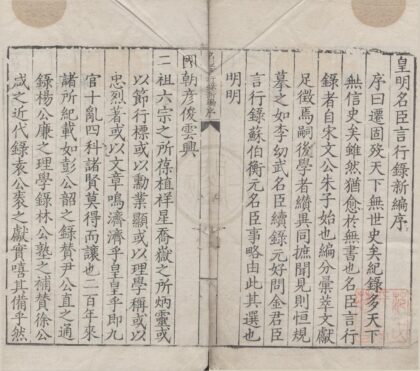 皇明名臣言行錄新編序
序曰遷固歿天下無世史矣紀錄多天下
無信史矣雖然猶愈於無書也名臣言行
錄者自宋文公朱子始也編分彙萃文獻
足徵焉嗣後學者纘其同摭聞見則恒規
摹之如李幼武名臣續錄元好問金君臣
言行錄蘇伯衡元名臣事略由此其選也
明明
國朝彦俊雲興
二祖六宗之所葆植祥星喬嶽之所炳靈或
以節行標或以勳業顯或以理學稱或以
忠烈著或以文章鳴濟濟乎皇皇乎即九
官十亂四科諸賢莫得而讓也二百年來
諸所紀載如彭公韶之錄贊尹公直之通
錄楊公廉之理學錄林公塾之補贊徐公
咸之近代錄袁公袠之獻實嘻其備乎然